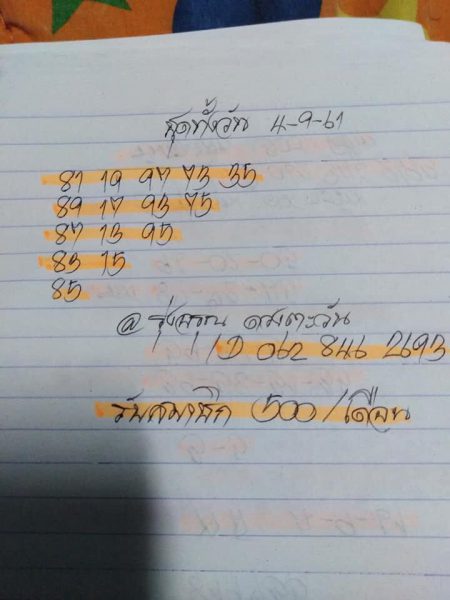 ชุดทั้งวัน 4-9-61
81 19 97 73 35
89 17 93 75
87 13 95
83 15
85
@ รุ่งอรุณ ตะวัน
ID 062 846 2693
รับสมาชิก 500/เดือน